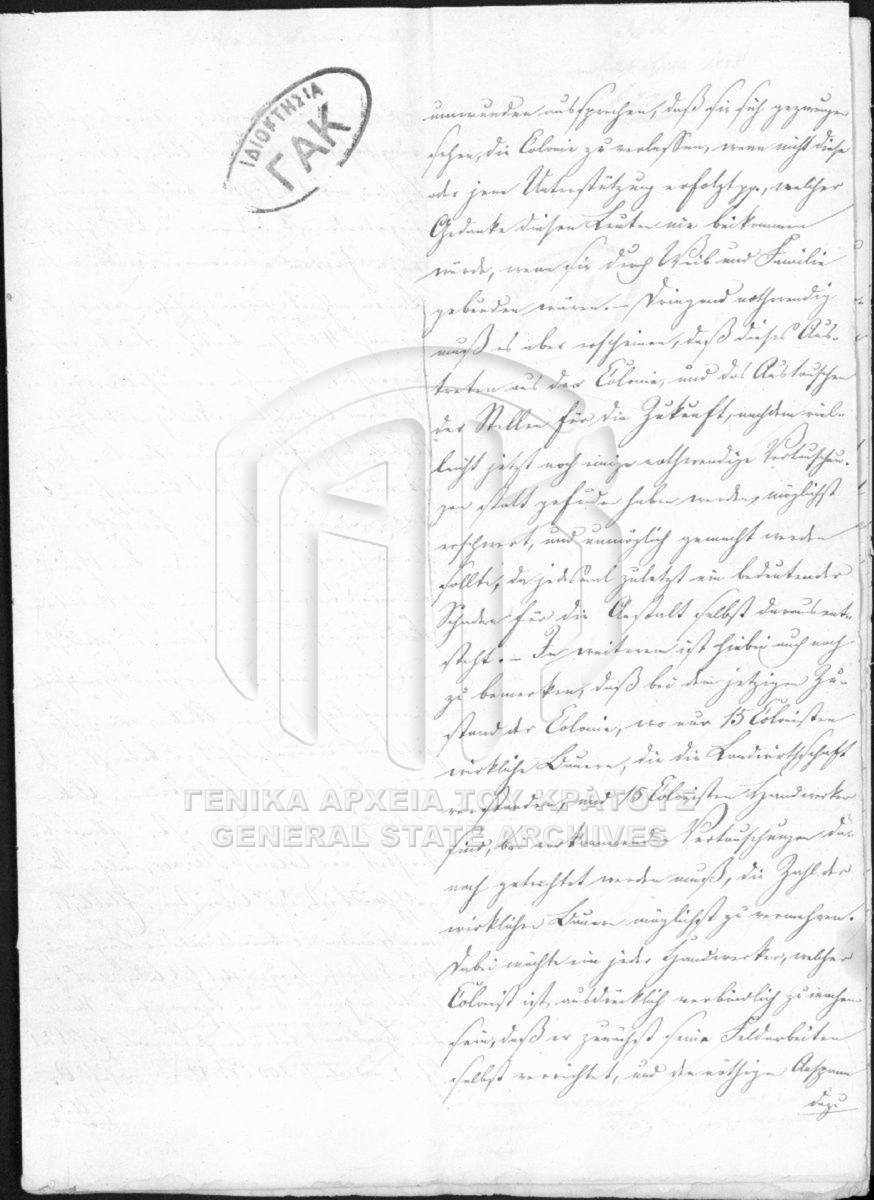 ΙΔΙΟΚΤΗΣΙΑ
ΓΑΚ
umwunden aussprechen, daß sie sich gezwungen
sehen, die Colonie zu verlassen, wenn nicht diese
oder jene Unterstützung erfolgt pp., welcher
Gedanke diesen Leuten nie beikommen
würde, wenn sie durch Weib und Familie
gebunden wären. – Dringend nothwendig
muß es aber erscheinen, daß dieses Aus-
treten aus der Colonie, und das Austauschen
der Stellen für die Zukunft, nachdem viel-
leicht jetzt noch einige nothwendige Vertauschun-
gen statt gefunden haben werden, möglichst
erschwert, und unmöglich gemacht werden
sollte, da jedesmal zuletzt ein bedeutender
Schaden für die Anstalt selbst daraus ent-
steht. – Im weiteren ist hiebei auch noch
zu bemerken, daß bei dem jetzigen Zu-
stand der Colonie, wo nur 15 Colonisten
wirkliche Bauern, die die Landwirthschaft
verstanden, und Colonisten Handwerker
sind, bei vorkommenden Vertauschungen da-
nach getrachtet werden muß, die Zahl der
wirklichen Bauern möglichst zu vermehren.
Dabei möchte ein jeder Handwerker, welcher
Colonist ist, ausdrücklich verbindlich zu machen
sein, daß er zunächst seine Feldarbeiten
selbst verrichtet, und die nöthige Anspann
dazu
ΓΕΝΙΚΑ ΑΡΧΕΙΑ ΤΟΥ ΚΡΑΤΟΥΣ
GENERAL STATE ARCHIVES